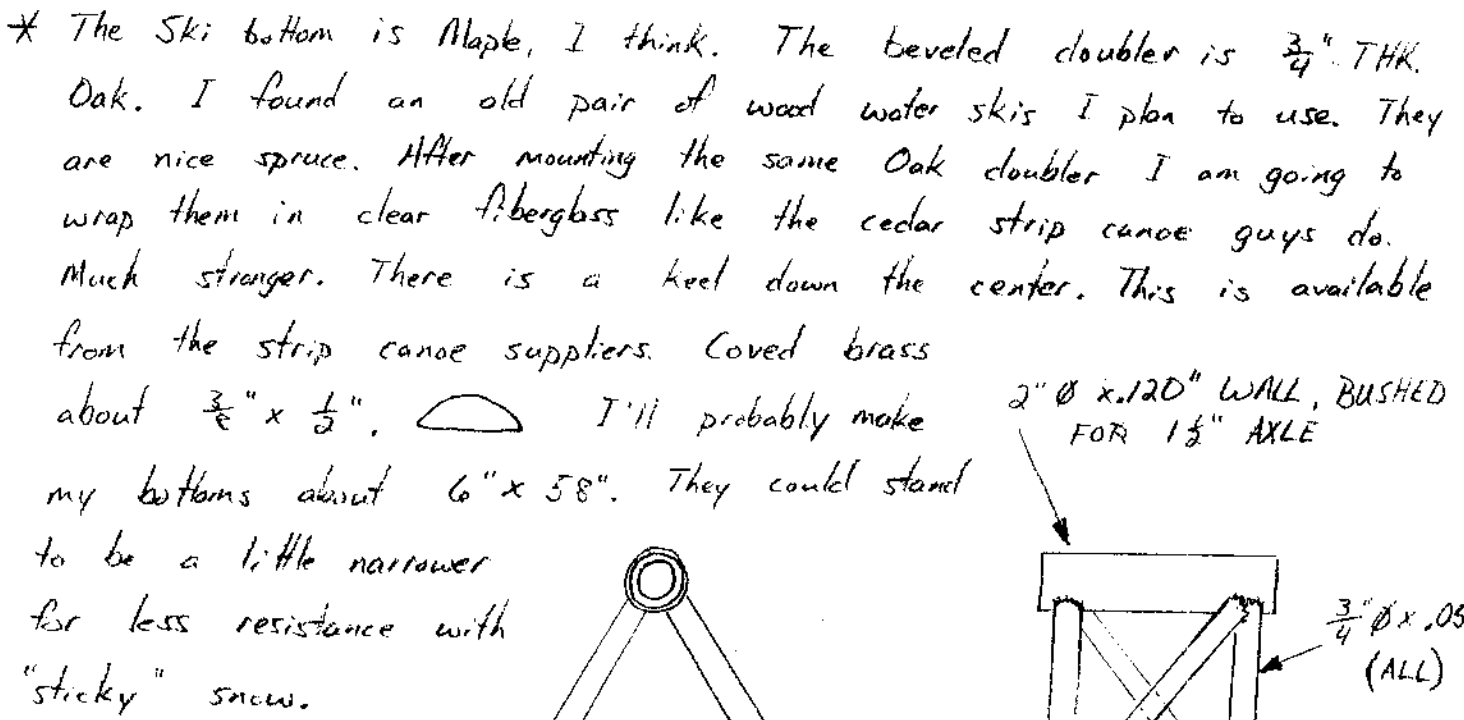 * The Ski bottom is Maple, I think. The beveled doubler is 3/4" THK.
Oak. I found an old pair of wood water skis I plan to use. They
are nice spruce. After mounting the same Oak doubler I am going to
wrap them in clear fiberglass like the cedar strip canoe guys do.
Much stronger. There is a keel down the center. This is available
from the strip canoe suppliers. Coved brass
about " x 1/2". I'll probably make
my bottoms about 6" x 58". They could stand
to be a little narrower
for less resistance with
"sticky" snow.
2" Ø x .120" WALL, BUSHED
FOR 1 1/2" AXLE
3/4" Ø x
(ALL)